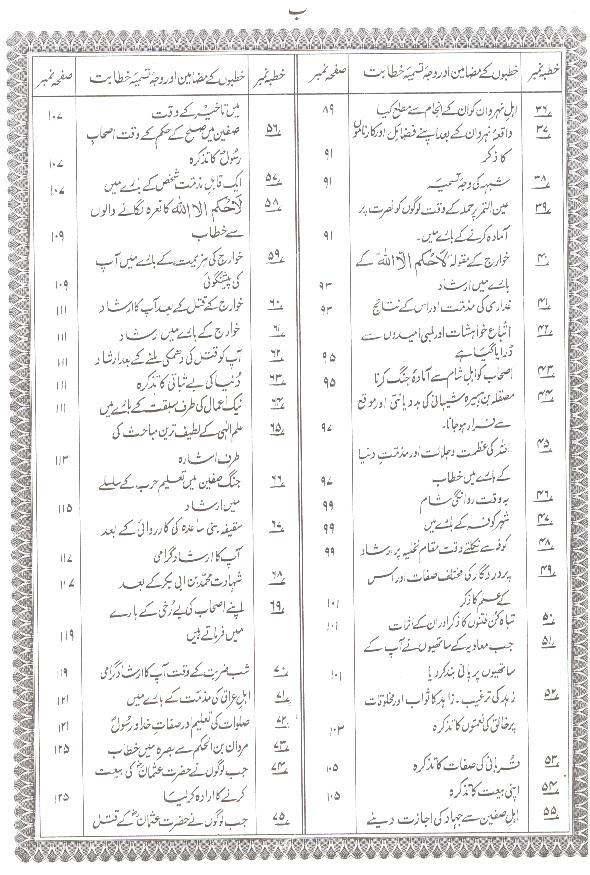 ب
خطبہ نمبر خطبوں کے مضامین اور وجہ تسمیہ خطابت صفحہ نمبر
۳۶ اہل نہروان کو ان کے انجام سے مطلع کیا ۸۹
۳۷ واقعۂ نہروان کے بعد اپنے فضائل اور کارناموں
کا ذکر ۹۱
۳۸ شبہ کی وجہ تسمیہ ۹۱
۳۹ عین التمر پر حملہ کے وقت لوگوں کو نصرت پر
آمادہ کرنے کے بارے میں۔ ۹۱
۴۰ خوارج کے مقولہ لاحکم الا اللہ کے
بارے میں ارشاد ۹۳
۴۱ غداری کی مذمت اور اس کے نتائج ۹۳
۴۲ اتباع خواہشات اور لمبی امیدوں سے
ڈرایا گیا ہے ۹۵
۴۳ اصحاب کو اہل شام سے آمادۂ جنگ کرنا ۹۵
۴۴ مصقلہ بن ہبیرہ شیبانی کی بددیانتی اور موقع
سے فرار ہو جانا۔ ۹۷
۴۵ اللہ کی عظمت و جلالت اور مذمت دنیا
کے بارے میں خطاب ۹۷
۴۶ بہ وقت روانگی شام ۹۹
۴۷ شہر کوفہ کے بارے میں ۹۹
۴۸ کوفہ سے نکلتے وقت مقام نخیلہ پر ارشاد ۹۹
۴۹ پروردگار کی مختلف صفات اور اس
کے علم کا ذکر ۱۰۱
۵۰ تباہ کن فتنوں کا ذکر اور ان کے اثرات ۱۰۱
۵۱ جب معاویہ کے ساتھیوں نے آپ کے
ساتھیوں پر پانی بند کر دیا ۱۰۱
۵۲ زہد کی ترغیب۔ زاہد کا ثواب اور مخلوقات
پر خالق کی نعمتوں کا تذکرہ ۱۰۳
۵۳ قربانی کی صفات کا تذکرہ ۱۰۵
۵۴ اپنی بیعت کا تذکرہ ۱۰۵
۵۵ اہل صفین سے جہاد کی اجازت دینے
خطبہ نمبر خطبوں کے مضامین اور وجہ تسمیہ خطابت صفحہ نمبر
میں تاخیر کے وقت ۱۰۷
۵۶ صفین میں صلح کے حکم کے وقت اصحاب
رسولؐ کا تذکرہ ۱۰۷
۵۷ ایک قابل مذمت شخص کے بارے میں ۱۰۷
۵۸ لاحکم الا اللہ کا نعرہ لگانے والوں
سے خطاب ۱۰۹
۵۹ خوارج کی ہزیمت کے بارے میں آپ
کی پیشگوئی ۱۰۹
۶۰ خوارج کے قتل کے بعد آپ کا ارشاد ۱۱۱
۶۱ خوارج کے بارے میں ارشاد ۱۱۱
۶۲ آپ کو قتل کی دھمکی ملنے کے بعد ارشاد ۱۱۱
۶۳ دنیا کی بے ثباتی کا تذکرہ ۱۱۱
۶۴ نیک اعمال کی طرف سبقت کے بارے میں ۱۱۱
۶۵ علم الٰہی کے لطیف ترین مباحث کی
طرف اشارہ ۱۱۳
۶۶ جنگ صفین میں تعلیم حرب کے سلسلے
میں ارشاد ۱۱۵
۶۷ سقیفہ بنی ساعدہ کی کارروائی کے بعد
آپ کا ارشاد گرامی ۱۱۷
۶۸ شہادت محمد بن ابی بکر کے بعد ۱۱۷
۶۹ اپنے اصحاب کی بے رُخی کے بارے
میں فرماتے ہیں ۱۱۹
۷۰ شب ضربت کے وقت آپ کا ارشاد گرامی ۱۱۹
۷۱ اہل عراق کی مذمت کے بارے میں ۱۲۱
۷۲ صلوات کی تعلیم اور صفات خدا و رسولؐ ۱۲۱
۷۳ مروان بن الحکم سے بصرہ میں خطاب ۱۲۵
۷۴ جب لوگوں نے حضرت عثمانؓ کی بیعت
کرنے کا ارادہ کر لیا ۱۲۵
۷۵ جب لوگوں نے حضرت عثمانؓ کے قتل